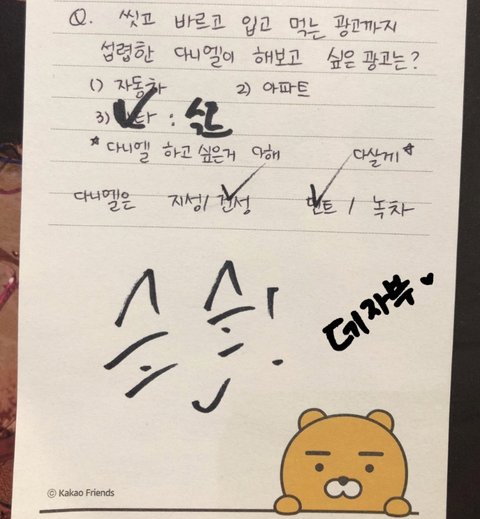 Q. 씻고 바르고 입고 먹는 광고까지
섭렵한 다니엘이 해보고 싶은 광고는?
1) 자동차 2) 아파트
3) 기타 :
*다니엘 하고 싶은거 다해 다살게*
다니엘은 지성/건성 민트/녹차
데자부♥
© Kakao Friends